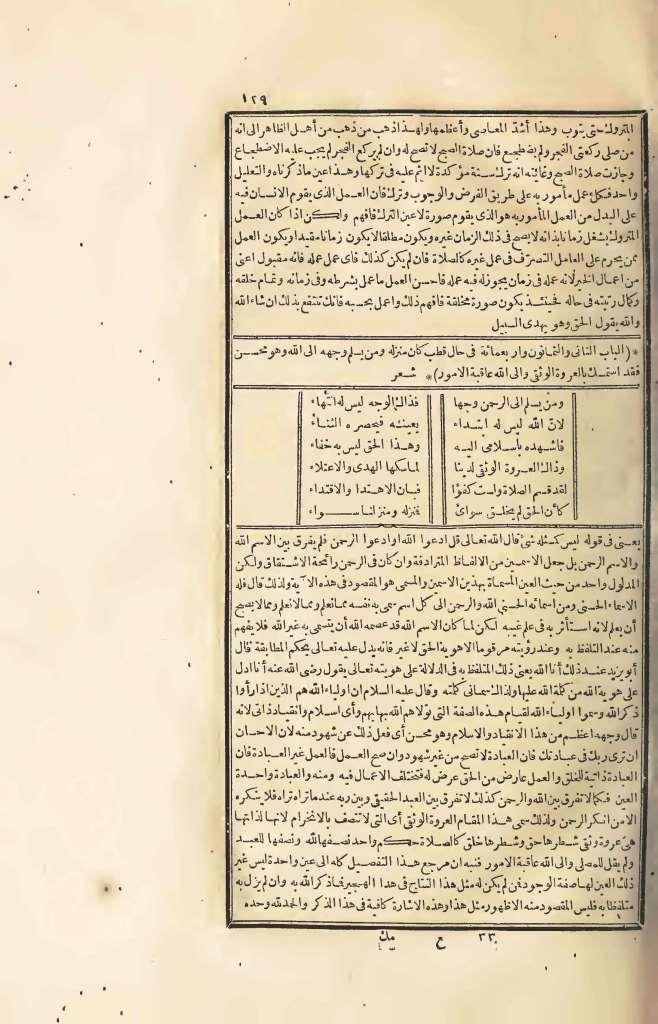 ١٢٩
المتروك حتى يتوب وهذا أشد المعاصى وأعظمها ولهذا ذهب من ذهب من أهل الظاهر الى انه
من صلى ركعتى الفجر ولم يضطجع فان صلاة الصبح لا تصح له وان لم يركع الفجر لم يجب عليه الاضطجاع
وجازت صلاة الصبح وغايته انه ترك سنة مؤكدة لا اثم عليه فى تركها وهذا عين ماذكرناه والتعليل
واحد فكل عمل مأمور به على طريق الفرض والوجوب وترك فان العمل الذى يقوم الانسان فيه
على البدل من العمل المأمور به هو الذى يقوم صورة لا عين الترك فافهم ولكن اذا كان العمل
المتروك يشغل زمانا بذاته لا يصح فى ذلك الزمان غيره ويكون مطلقا لا يكون زمانا مقيدا ويكون العمل
ممن يحرم على العامل التصرف فى عمل غيره كالصلاة فان لم يكن كذلك فاى عمل عمله فانه مقبول اعنى
من اعمال الخير لانه عمله فى زمان يجوز له فيه عمله فاحسن العمل ما عمل بشرطه وفى زمانه وتمام خلقه
وكمال رتبته فى حاله فحينئذ يكون صورة مخلقة فافهم ذلك واعمل بحسبه فانك تنتفع بذلك ان شاء الله
والله يقول الحق وهو يهدى السبيل
*(الباب الثانى والثمانون واربعمائة فى حال قطب كان منزله ومن يسلم وجهه الى الله وهو محسن
فقد استمسك بالعروة الوثقى والى الله عاقبة الامور)* شعر
ومن يسلم الى الرحمن وجها فذاك الوجه ليس له انتهاء
لان الله ليس له ابتداء يعينه فيحصره الثناء
فاشهده باسلامى اليه وهذا الحق ليس به خفاء
وذاك العروة الوثقى لدينا لماسكها الهدى والاعتلاء
لقد قسم الصلاة ولست كفؤا فبان الاهتدا والاقتداء
كأن الحق لم يخلق سوائى فنزله ومنزلنا سواء
يعنى فى قوله ليس كمثله شئ قال الله تعالى قل ادعوا الله او ادعوا الرحمن فلم يفرق بين الاسم الله
والاسم الرحمن بل جعل الاسمين من الالفاظ المترادفة وان كان فى الرحمن رائحة الاشتقاق ولكن
المدلول واحد من حيث العين المسماة بهذين الاسمين والمسمى هو المقصود فى هذه الآية ولذلك قال فله
الاسماء الحسنى ومن اسمائه الحسنى الله والرحمن الى كل اسم سمى به نفسه مما نعلم ومما لا نعلم ومما لا يصح
أن يعلم لانه استأثر به فى علم غيبه لكن لما كان الاسم الله قد عصمه الله أن يتسمى به غير الله فلا يفهم
منه عند التلفظ به وعند رؤيته مرقوما الا هوية الحق لا غير فانه يدل عليه تعالى بحكم المطابقة قال
أبو يزيد عند ذلك أنا الله يعنى ذلك المتلفظ به فى الدلالة على هويته تعالى يقول رضى الله عنه أنا ادل
على هوية الله من كلمة الله عليها ولذا سمانى كلمته وقال عليه السلام ان اولياء الله هم الذين اذا رأوا
ذكر الله وسموا اولياء الله لقيام هذه الصفة التى تولاهم الله بها بهم وأى اسلام وانقياد ذاتى لانه
قال وجهه اعظم من هذا الانقياد والاسلام وهو محسن أى فعل ذلك عن شهود منه لان الاحسان
ان ترى ربك فى عبادتك فان العبادة لا تصح من غير شهود وان صح العمل فالعمل غير العبادة فان
العبادة ذاتية للخلق والعمل عارض من الحق عرض له فتختلف الاعمال فيه ومنه والعبادة واحدة
العين فكما لا تفرق بين الله والرحمن كذلك لا تفرق بين العبد الحقيقى وبين ربه عند ما تراه تراه فلا ينكره
الا من انكر الرحمن ولذلك سمى هذا المقام العروة الوثقى أى التى لا تتصف بالانخرام لانها لذاتها
هى عروة وثقى شطرها حق وشطرها خلق كالصلاة حكم واحد نصفها لله ونصفها للعبد
ولم يقل للمصلى والى الله عاقبة الامور فنبه ان مرجع هذا التفصيل كله الى عين واحدة ليس غير
ذلك العين لها صفة الوجود فمن لم يكن له مثل هذا النتاج فى هذا الهجير فما ذكر الله به وان لم يزل به
متلفظا به فليس المقصود منه الا ظهور مثل هذا وهذه الاشارة كافية فى هذا الذكر والحمد لله وحده
٣٣ ع مك